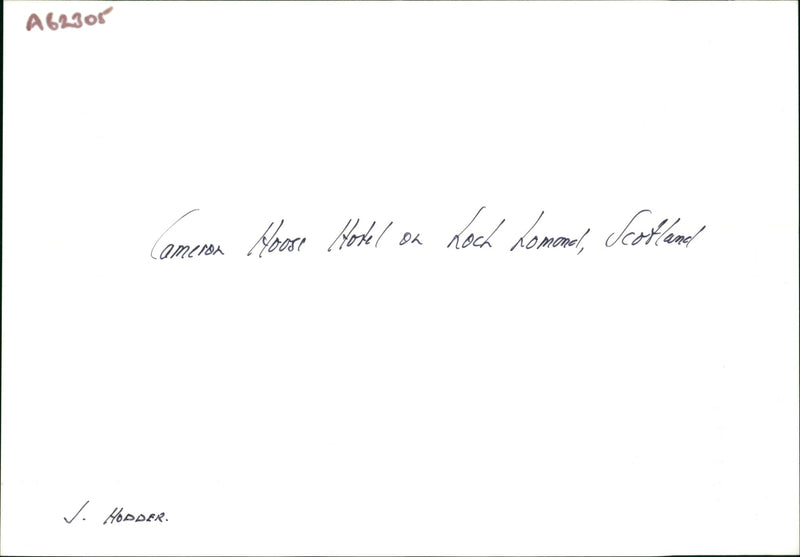 A62305
Cameron House Hotel on Loch Lomond, Scotland
J. HODDER.